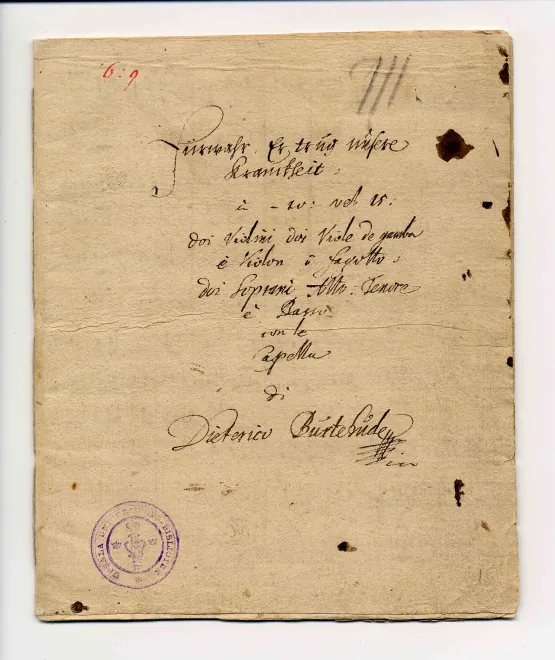 6:9
Fürwahr. Er trüg ünsere
Kranckheit:
à - 10: vel 15:
doi Violini doi Viole de gamba
è Violon ô fagotto:
doi Soprani Alto: Tenore
è Basso
con le
Capella
di
Dieterico Büxtehüde
UPSALA UNIVERSITETS-BIBLIOTEK